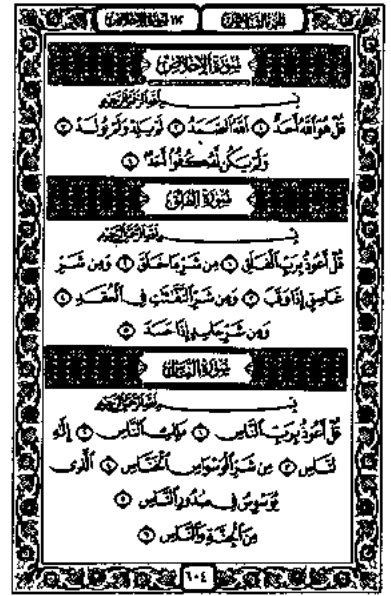 الجزء الثلاثون ١١٢ سورة الإخلاص
سُورَةُ الإِخْلَاصِ
بِسْمِ اللَّهِ الرَّحْمَٰنِ الرَّحِيمِ
قُلْ هُوَ اللَّهُ أَحَدٌ ١ اللَّهُ الصَّمَدُ ٢ لَمْ يَلِدْ وَلَمْ يُولَدْ ٣
وَلَمْ يَكُن لَّهُ كُفُوًا أَحَدٌ ٤
سُورَةُ الفَلَقِ
بِسْمِ اللَّهِ الرَّحْمَٰنِ الرَّحِيمِ
قُلْ أَعُوذُ بِرَبِّ الْفَلَقِ ١ مِن شَرِّ مَا خَلَقَ ٢ وَمِن شَرِّ
غَاسِقٍ إِذَا وَقَبَ ٣ وَمِن شَرِّ النَّفَّٰثَٰتِ فِي الْعُقَدِ ٤
وَمِن شَرِّ حَاسِدٍ إِذَا حَسَدَ ٥
سُورَةُ النَّاسِ
بِسْمِ اللَّهِ الرَّحْمَٰنِ الرَّحِيمِ
قُلْ أَعُوذُ بِرَبِّ النَّاسِ ١ مَلِكِ النَّاسِ ٢ إِلَٰهِ
النَّاسِ ٣ مِن شَرِّ الْوَسْوَاسِ الْخَنَّاسِ ٤ الَّذِي
يُوَسْوِسُ فِي صُدُورِ النَّاسِ ٥
مِنَ الْجِنَّةِ وَالنَّاسِ ٦
٦٠٤